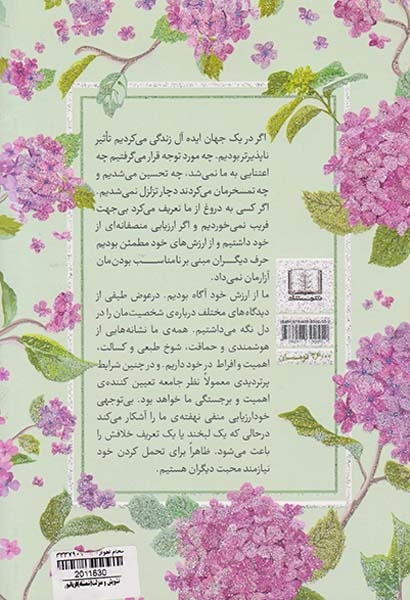 اگر در یک جهان ایده آل زندگی می‌کردیم تأثیر
ناپذیرتر بودیم. چه مورد توجه قرار می‌گرفتیم چه
اعتنایی به ما نمی‌شد، چه تحسین می‌شدیم و
چه تمسخرمان می‌کردند دچار تزلزل نمی‌شدیم.
اگر کسی به دروغ از ما تعریف می‌کرد بی‌جهت
فریب نمی‌خوردیم و اگر ارزیابی منصفانه‌ای از
خود داشتیم و از ارزش‌های خود مطمئن بودیم
حرف دیگران مبنی بر نامناسب بودن‌مان
آزارمان نمی‌داد.
ما از ارزش خود آگاه بودیم. درعوض طیفی از
دیدگاه‌های مختلف درباره‌ی شخصیت‌مان را در
دل نگه می‌داشتیم. همه‌ی ما نشانه‌هایی از
هوشمندی و حماقت، شوخ طبعی و کسالت،
اهمیت و افراط در خود داریم. و در چنین شرایط
پرتردیدی معمولاً نظر جامعه تعیین کننده‌ی
اهمیت و برجستگی ما خواهد بود. بی‌توجهی
خودارزیابی منفی نهفته‌ی ما را آشکار می‌کند
درحالی که یک لبخند یا یک تعریف خلافش را
باعث می‌شود. ظاهراً برای تحمل کردن خود
نیازمند محبت دیگران هستیم.
2011630